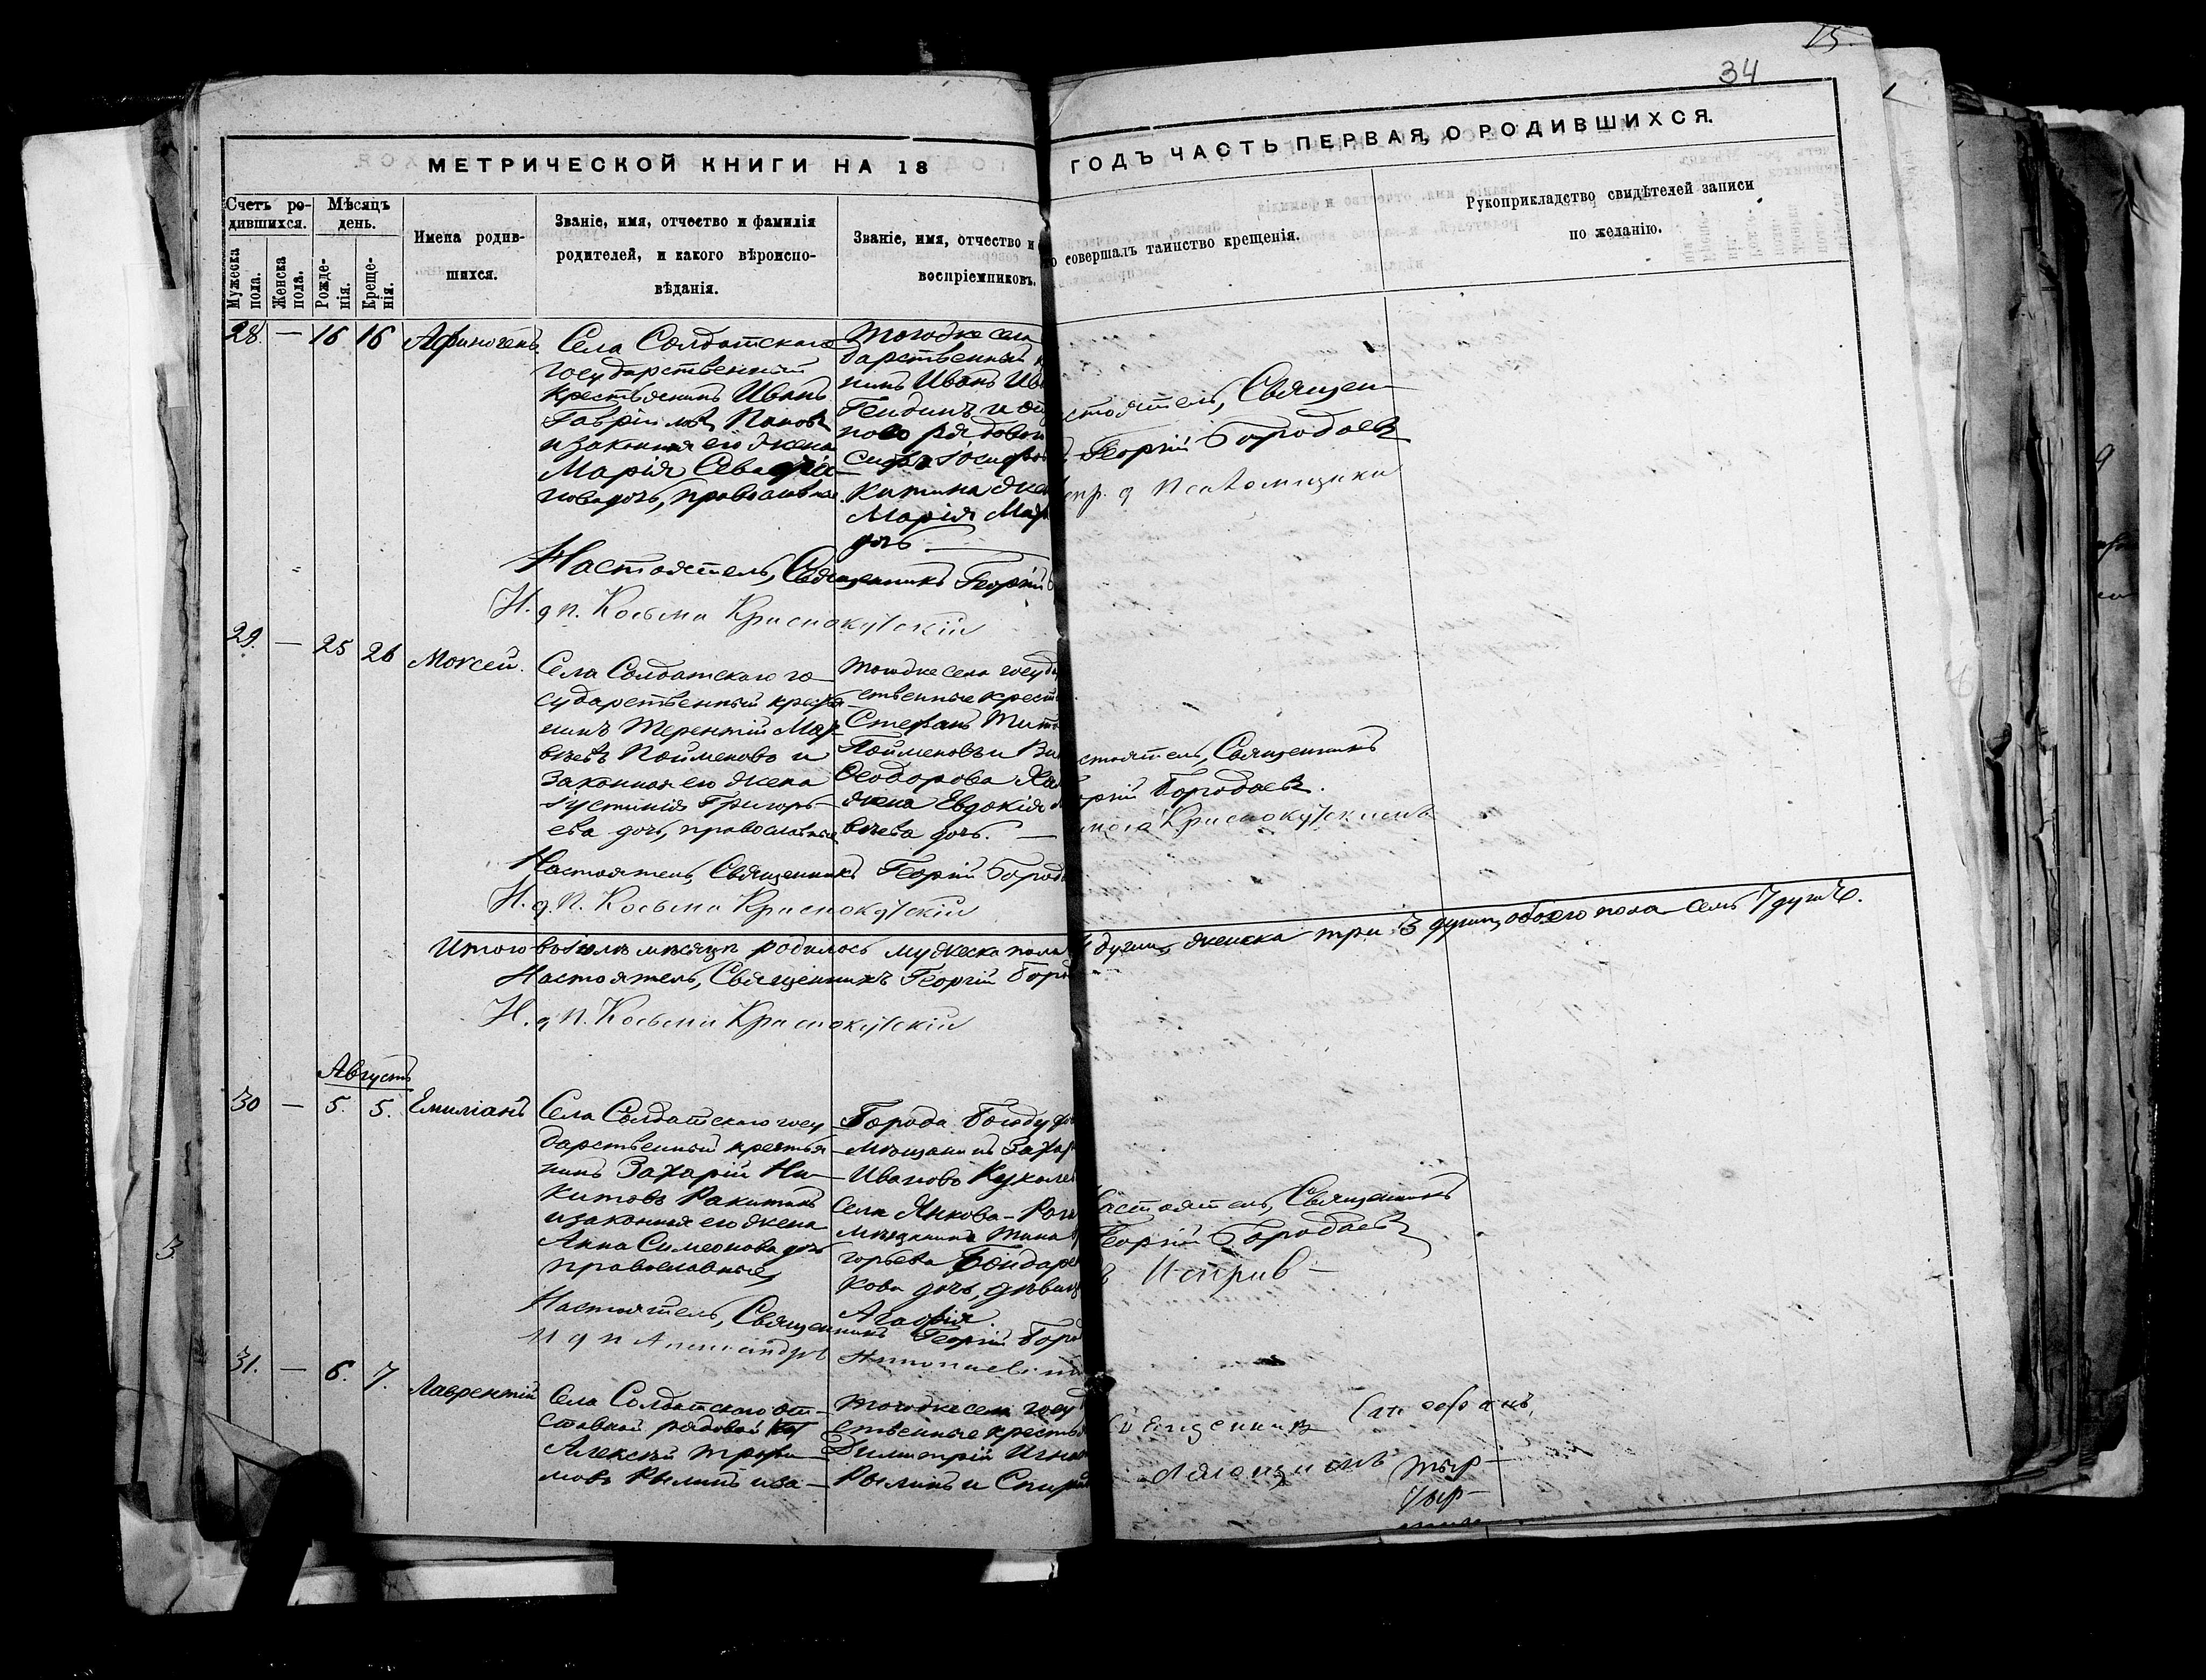 15.
34
МЕТРИЧЕСКОЙ КНИГИ НА 18
ГОДЪ ЧАСТЬ ПЕРВАЯ, О РОДИВШИХСЯ.
Счетъ ро-
дившихся.
Мѣсяцъ
день.
Мужеска
пола.
Женска
пола.
Рожде-
нія.
Креще-
нія.
Имена родив-
шихся.
Званіе, имя, отчество и фамилія
родителей, и какого вѣроиспо-
вѣданія.
Званіе, имя, отчество и
воспріемниковъ.
о совершалъ таинство крещенія.
Рукоприкладство свидѣтелей записи
по желанію.
28. — 16 16 Афиногенъ.
Села Солдатскаго
государственный
крестьянинъ Иванъ
Гавріиловъ Поповъ
и законная его жена
Марія
нова дочь, православные
тогоже села
дарственный
нинъ Иванъ
Гендинъ и
рядов
жен
Марія Мар
дочь —
стоятель, Священ
Георгій Бородаевъ
Настоятель, Священникъ Георгій
И. д п. Косьма Краснокутскій
29. — 25 26 Моисей.
Села Солдатскаго го-
сударственный крестья-
нинъ Терентій Мат-
вѣевъ Пойменовъ и
законная его жена
Іустинія Григорь-
ева дочь, православные
тогоже села госуда
ственные кресть
Стефанъ Тито
Пойменовъ и
Ѳеодорова
жена Евдокія
вѣева дочь. —
стоятель, Священникъ
ргій Бородаевъ.
Краснокутскимъ
Настоятель, Священникъ Георгій Борода
И. д. п. Косьма Краснокутскій
Итого въ Іюлѣ мѣсяцѣ родилось мужеска пола 4 души, женска три 3 души, обоего пола семь 7 душъ.
Настоятель, Священникъ Георгій Боро
И. д п. Косьма Краснокутскій
Августъ
30 — 5. 5. Емиліанъ
Села Солдатскаго госу
дарственный крестья
нинъ Захарій Ни-
китовъ Ракитинъ
и законная его жена
Анна Симеонова дочь
православные
Города Богодухо
мѣщанинъ Захар
Ивановъ
Села Янкова-Рога
горьева Бондаре
кова дочь, дѣвица
Настоятель, Священникъ
Георгій Бородаевъ
Настоятель, Священникъ Георгій Боро
И д п Александръ
31. — 6. 7. Лаврентій
Села Солдатскаго от-
ставной рядовой
Алексѣй Трофи-
мовъ Рылинъ и за-
тогоже села госуд
ственные крестья
Димитрій Игна
Рылинъ и Спири
Священникъ